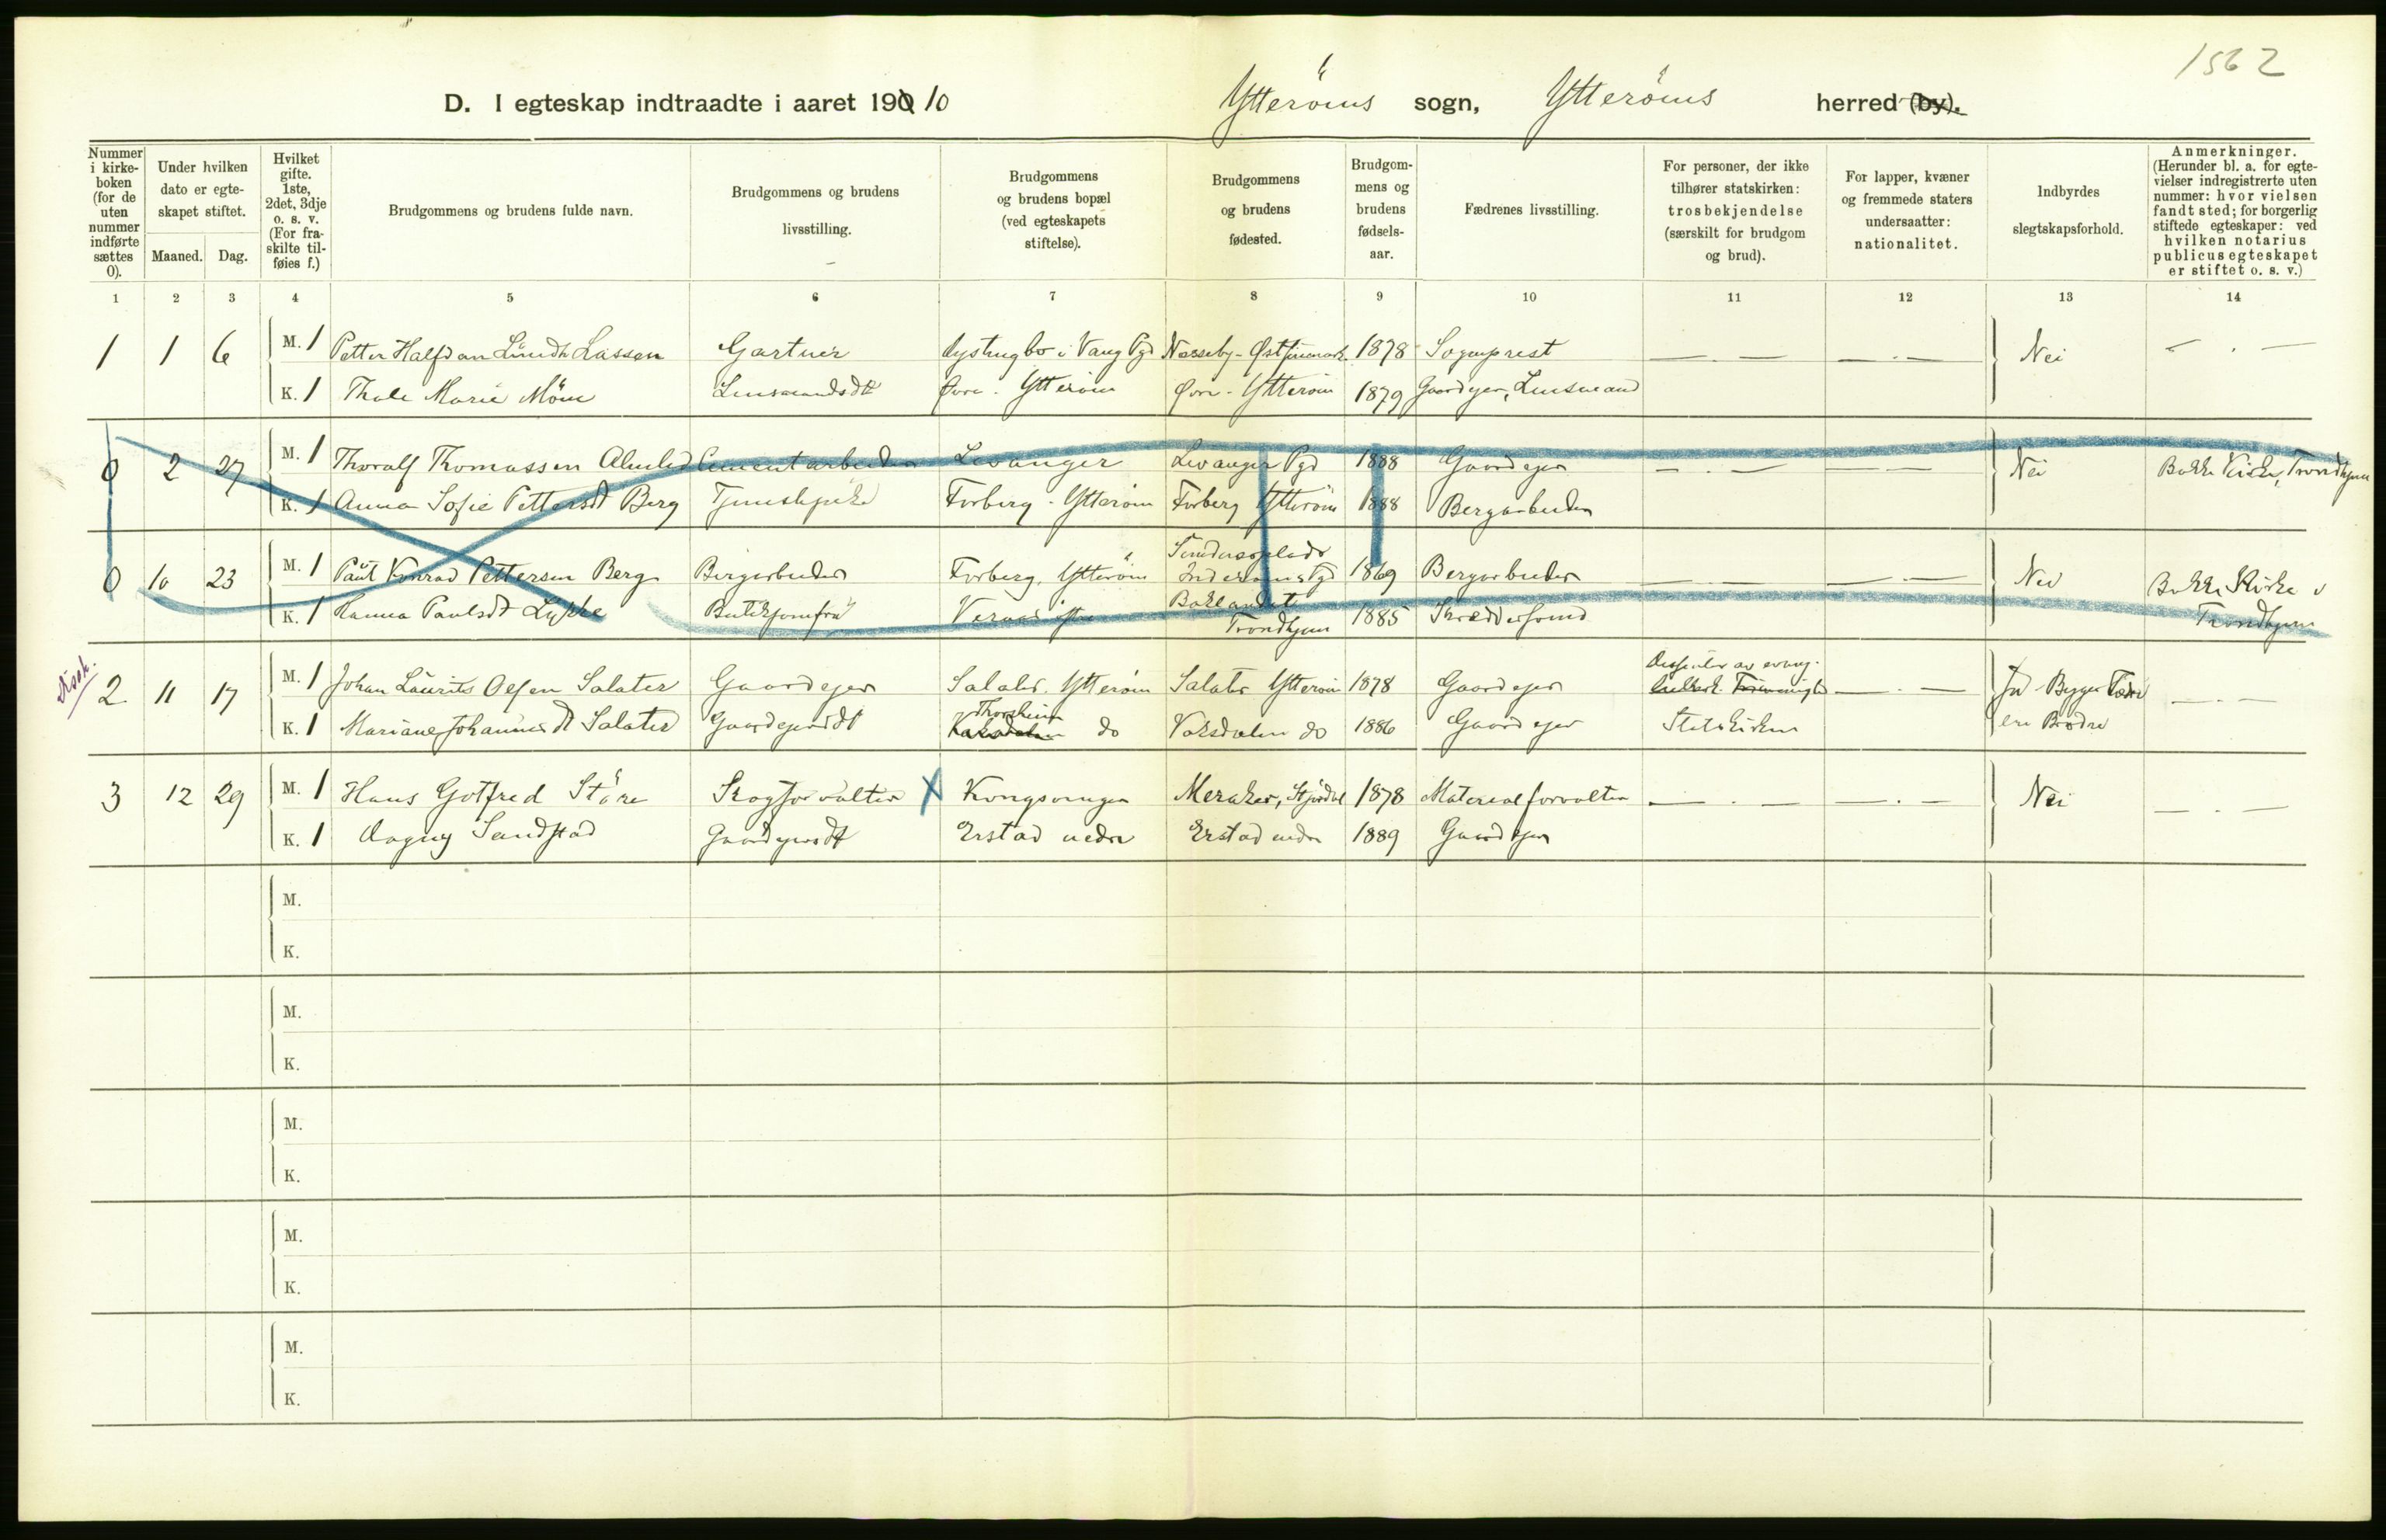 1562
D. I egteskap indtraadte i aaret 190 10 Ytteröens sogn, Ytteröens herred (by).
Nummer i kirke-boken (for de uten nummer indførte sættes 0).
Under hvilken dato er egte-skapet stiftet.
Maaned. Dag.
Hvilket gifte. 1ste, 2det, 3dje o. s. v. (For fra-skilte til-føies f.)
Brudgommens og brudens fulde navn.
Brudgommens og brudens livsstilling.
Brudgommens og brudens bopæl (ved egteskapets stiftelse).
Brudgommens og brudens fødested.
Brudgom-mens og brudens fødsels-aar.
Fædrenes livsstilling.
For personer, der ikke tilhører statskirken: trosbekjendelse (særskilt for brudgom og brud).
For lapper, kvæner og fremmede staters undersaatter: nationalitet.
Indbyrdes slegtskapsforhold.
Anmerkninger. (Herunder bl. a. for egte-vielser indregistrerte uten nummer: hvor vielsen fandt sted; for borgerlig stiftede egteskaper: ved hvilken notarius publicus egteskapet er stiftet o. s. v.)
1 2 3 4 5 6 7 8 9 10 11 12 13 14
1 1 6 M. 1 Petter Halfdan Lündh Lassen Gartner i Vang Pgd Nesseby - Østfinmark 1878 Sogneprest — . — — . — Nei — . —
K. 1 Thale Marie Möin Lensmandsdt Øvre - Ytteröen Øvre - Ytteröen 1879 Gaardejer, Lensmand
0 2 27 M. 1 Thoralf Thomassen Almlid Cementarbeider Levanger Levanger Pgd 1888 Gaardejer — . — — — Nei Bakke Kirke, Trondhjem
K. 1 Anna Sofie Pettersdt Berg Tjenestepike Forberg - Ytteröen Forberg Ytteröen 1888 Bergarbeider
0 10 23 M. 1 Paul Konrad Pettersen Berg Bergarbeider Forberg, Ytteröen Inderöens Pgd 1869 Bergarbeider — . — — . — Nei Bakke Kirke i
K. 1 Hanna Paulsdt Lykke Butikjomfru Baklandet Trondhjem 1885 Skreddersvend Trondhjem
2 11 17 M. 1 Johan Laurits Olsen Salater Gaardejer Salater. Ytteröen Salater Ytteröen 1878 Gaardejer Dissenter av evang. — . — Ja - Begges Fædre — . —
K. 1 Mariane Johannesdt Salater Gaardejersdt Thorsheim Vaksdalen do Vaksdalen do 1886 Gaardejer Statskirken ere Brødre
3 12 29 M. 1 Hans Gotfred Störe Skogforvalter X Kongsvinger Meraker, Stjørdal 1878 Materialforvalter — . — — . — Nei — . —
K. 1 Dagny Sandstad Gaardejersdt Erstad nedre Erstad nedre 1889 Gaardejer
M.
K.
M.
K.
M.
K.
M.
K.
M.
K.